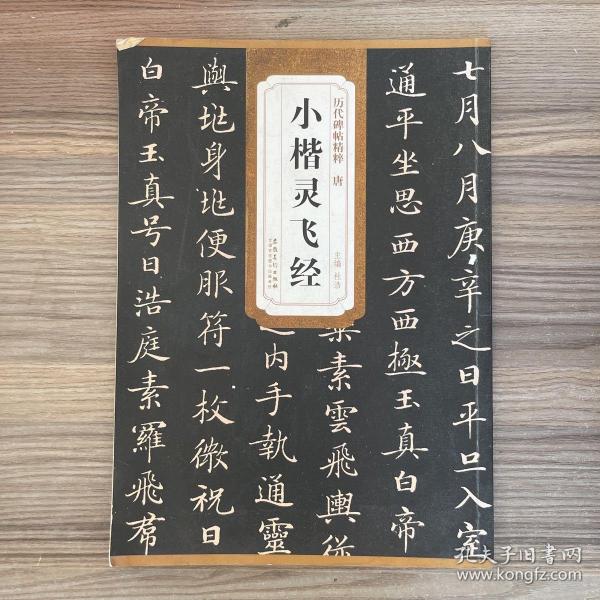 历代碑帖精粹 唐
小楷灵飞经
主编 杜浩
安徽美术出版社
七月八月庚辛之日平旦入室
通平坐思西方西極玉真白帝
素雲飛輿從
之内手執通靈
與地身地便服符一枚微祝曰
白帝玉真号曰浩庭素羅飛席
孔夫子旧书网
www.kongfz.com